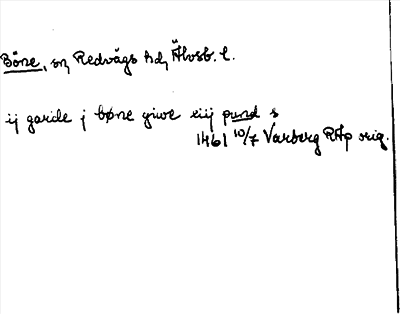 Böne, sn, Redvägs hd, Älvsb. l.
ij garde j bøne giwe eiij pund s
1461 10/7 Varberg RAp orig.